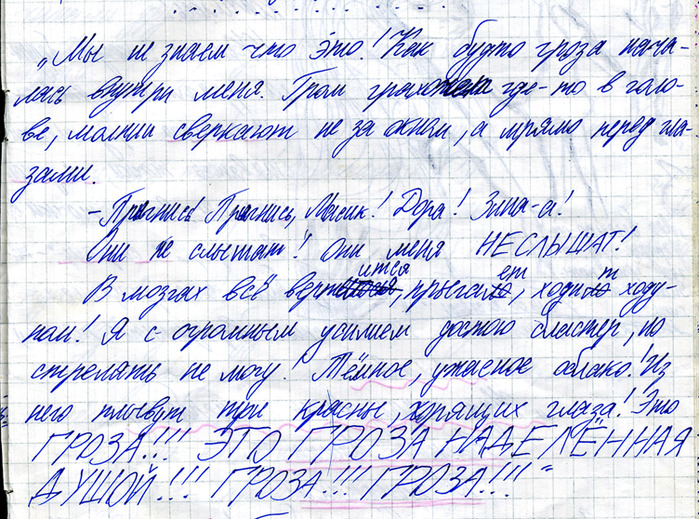 „Мы не знаем что это! Как будто гроза нача-
лась внутри меня. Гром грохотал где-то в голо-
ве, молнии сверкают не за окном, а прямо перед гла-
зами.
– Проснись! Проснись, Масик! Дора! Зина-а!
Они не слышат! Они меня НЕСЛЫШАТ!
В мозгах всё вертится, прыгает, ходит ходу-
ном! Я с огромным усилием достаю бластер, но
стрелять не могу! Тёмное, ужасное облако! Из
него плывут три красные, горящих глаза! Это
ГРОЗА!!! ЭТО ГРОЗА НАДЕЛЁННАЯ
ДУШОЙ!!! ГРОЗА!!! ГРОЗА!!!"